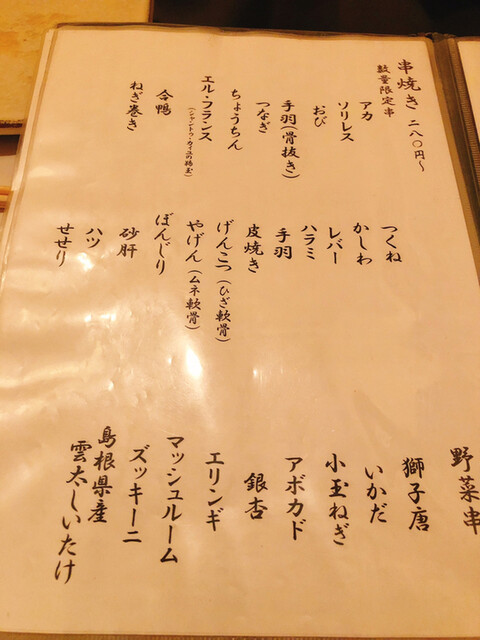 串焼き 二八〇円～
数量限定串
アカ
ソリレス
おび
手羽(骨抜き)
つなぎ
ちょうちん
エル・フランス
(シャントゥ・カイユの鶉玉)
合鴨
ねぎ巻き
つくね
かしわ
レバー
ハラミ
手羽
皮焼き
げんこつ(ひざ軟骨)
やげん(ムネ軟骨)
ぼんじり
砂肝
ハツ
せせり
野菜串
獅子唐
いかだ
小玉ねぎ
アボカド
銀杏
エリンギ
マッシュルーム
ズッキーニ
島根県産
雲太しいたけ